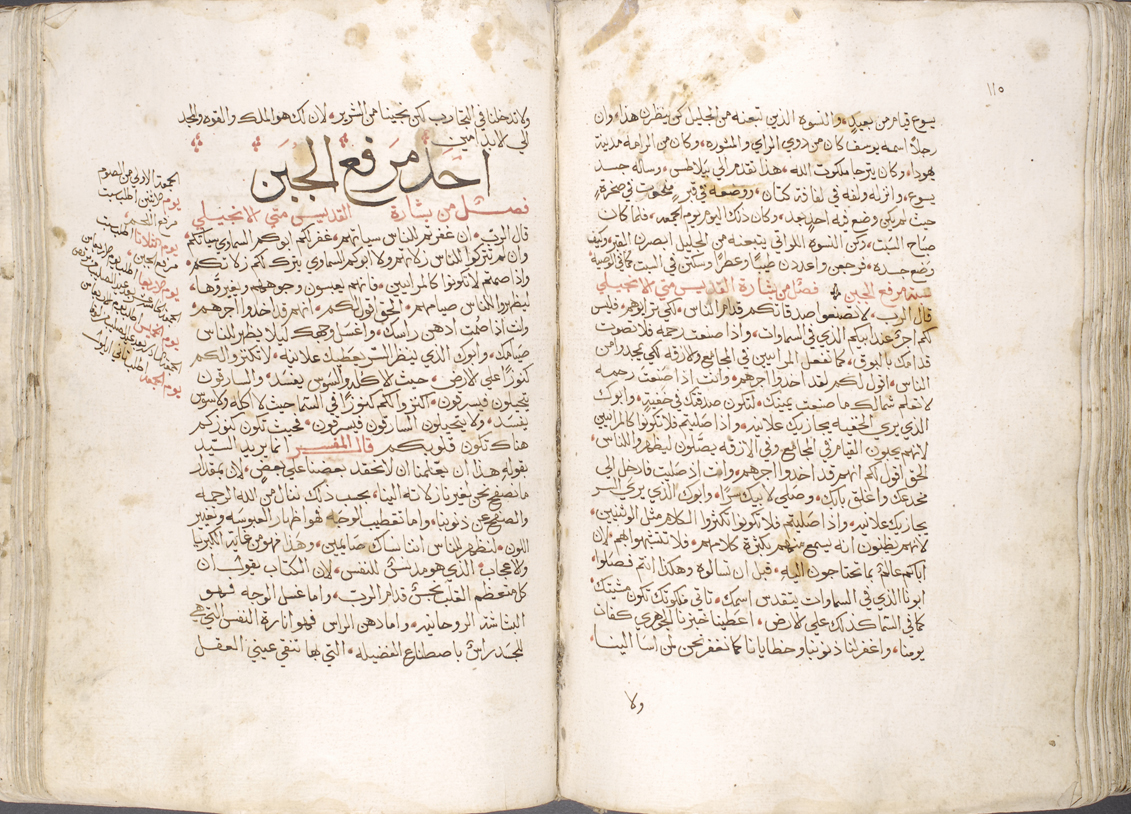 ١١٥
يسوع قيام من بعيد، والنسوه الذين تبعنه من الجليل كن ينظرن هذا، وان
رجلاً اسمه يوسف كان من ذوي الراي والمشوره، وكان من الرامه مدينة
يهودا، وكان يترجا ملكوت الله، هذا تقدم الي بيلاطس، وساله جسد
يسوع، وانزله ولفه في لفافة كتان، ووضعه في قبرٍ منحوت في صخرةٍ،
حيث لم يكن وضع فيه احدٍ بعد، وكان ذلك اليوم يوم الجمعه، فلما كان
صباح السبت، ذكن النسوه اللواتي يتبعنه من الجليل ابصرن القبر وكيف
وضع جسده، فرجعن واعددن طيباً وعطراً وسكتن في السبت كما في الوصيه
سبة مرفع الجبن، فصل من بشارة القديس متي الانجيلي
قال الرب، لا تصنعوا صدقاتكم قدام الناس، لكي تراووهم، فليس
لكم اجرة عند ابيكم الذي في السماوات، واذا صنعت رحمه فلا تصوت
قدامك بالبوق، كما تفعل المرايين في المجامع والازقه لكي يمجدوا من
الناس، اقول لكم لقد اخدوا اجرهم، وانت اذا صنعت رحمه
لا تعلم شمالك ما صنعت يمينك، لتكون صدقتك في خفيه، وابوك
الذي يري الخفيه يجازيك علانيه، واذا صليتم فلا تكونوا كالمرايين
لانهم يحبون القيام في المجامع وفي الازقه يصلون ليظهروا للناس،
الحق اقول لكم انهم قد اخدوا اجرهم، وانت اذ صليت فادخل الي
مخدعك واغلق بابك، وصلي لابيك سراً، وابوك الذي يري السر
يجازيك علانيه، واذا صليتم فلا تكونوا تكثروا الكلام مثل الوثنيين
لانهم يظنون انه يسمع منهم بكثرة كلامهم، فلا تتشبهوا بهم، لان
اباكم عالم بما تحتاجون اليه، قبل ان تسالوه وهكذا انتم فصلوا،
ابونا الذي في السماوات يتقدس اسمك، تاتي ملكوتك تكون مشيتك
كما في السما كذلك علي الارض، اعطينا خبزنا الجوهري كفات
يومنا، واغفر لنا ذنوبنا وخطايانا كما نغفر نحن لمن اسا الينا،
ولا
ولا تدخلنا في التجارب لكن نجينا من الشرير، لان لك هو الملك والقوه والمجد
الي الابد امين
احد مرفع الجبن
فصل من بشارة القديس متي الانجيلي
قال الرب، ان غفرتم للناس سياتهم، غفر لكم ابوكم السماوي سياتكم
وان لم تتركوا للناس زلاتهم ولا ابوكم السماوي يترك لكم زلاتكم،
واذا صمتم لا تكونوا كالمرايين، فانهم يعبسون وجوههم ويغيروها،
ليظهروا للناس صيامهم، الحق اقول لكم، انهم قد اخدوا اجرهم،
وانت اذا صمت ادهن راسك، واغسل وجهك كيلا يظهر للناس
صيامك، وابوك الذي ينظر السر يعطيك علانيه، لا تكنزوا لكم
كنوزاً علي الارض، حيث الاكله والسوس يفسد، والسارقون
يتحيلون فيسرقون، اكنزوا لكم كنوزاً في السما حيث لا اكله ولا سوس
يفسد، ولا يتحيلون السارقون فيسرقون، فحيث تكون كنوزكم
هناك تكون قلوبكم قال المفسر انما يريد السيد
بقوله هذا ان يعلمنا ان لا نحقد بعضنا علي بعض، لان بمقدار
ما نصفح نحن لغيرنا زلاته الينا، بحسب ذلك ننال من الله الرحمه
والصفح عن ذنوبنا، واما تقطيب الوجه فهو اظهار العبوسه وتغيير
اللون، لنظهر للناس اننا نساك صايمين، وهذا فهو من غاية الكبريا
والاعجاب الذي هو مدنس للنفس، لان الكتاب يقول ان
كل متعظم القلب نجس قدام الرب، واما غسل الوجه فهو
البشاشه الروحانيه، واما دهن الراس فهو انارة النفس التي هي
للجسد راس باصطناع الفضيله، التي بها تنقي عيني العقل
الجمعه الاولي من الصوم
يوم الاثنين اطلب سبت
مرفع اللحم،
يوم الثلاثا اطلب سبت
مرفع الجبن،
يوم الاربعا
يوم الخميس
يوم الجمعه